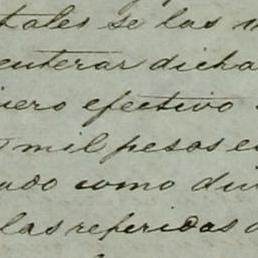 tales se las
enterar dicha
efectivo
mil pesos
como
las referidas